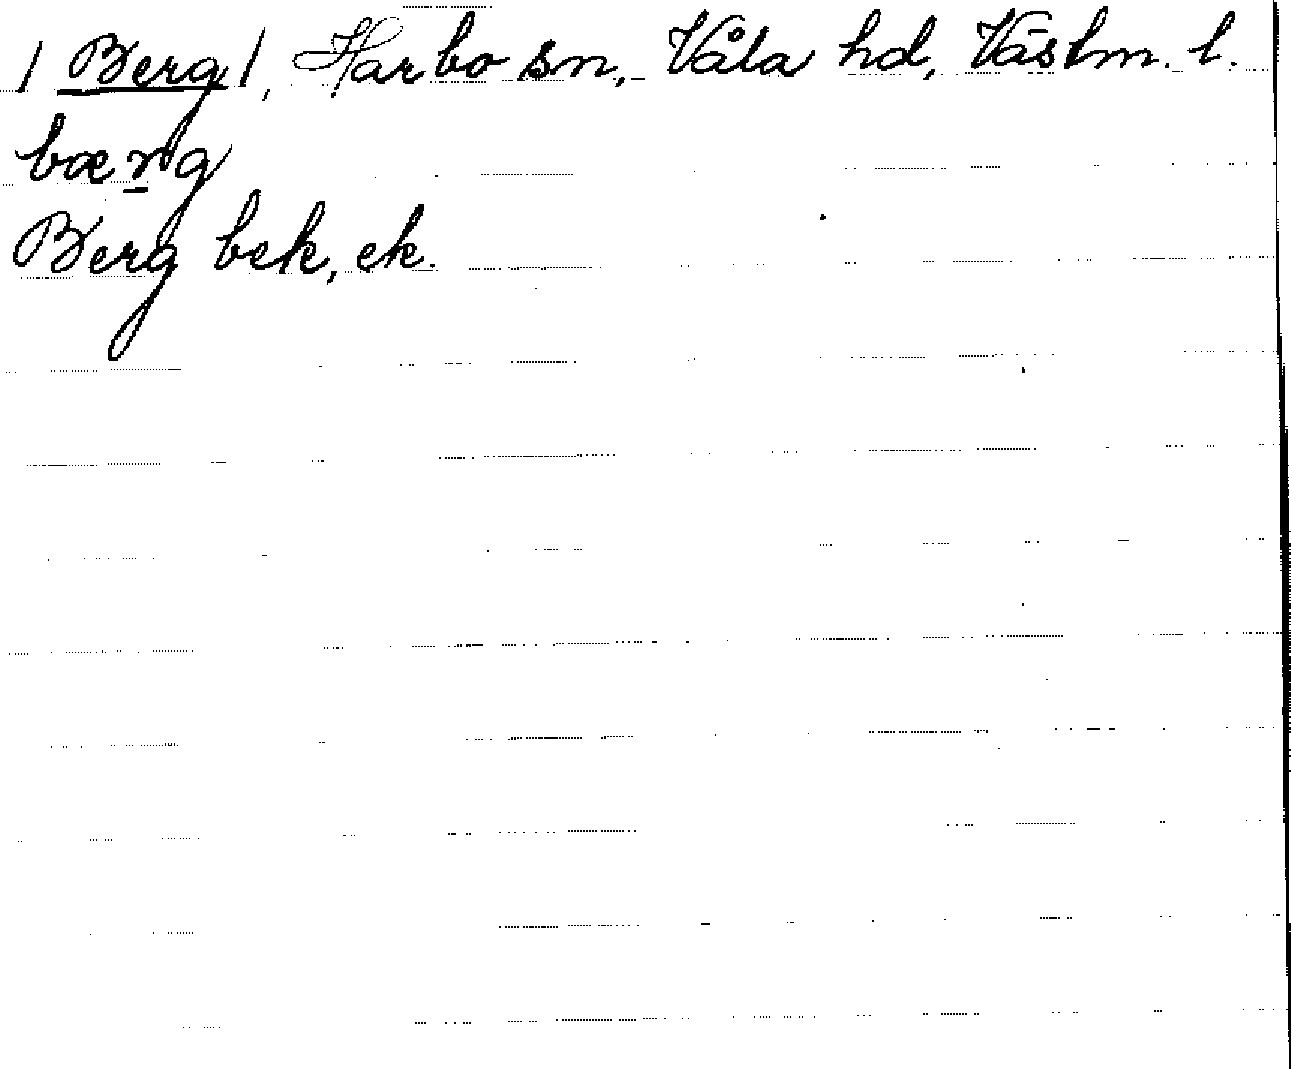 / Berg /, Harbo sn, Våla hd, Västm. l.
bærg
Berg bek, ek.